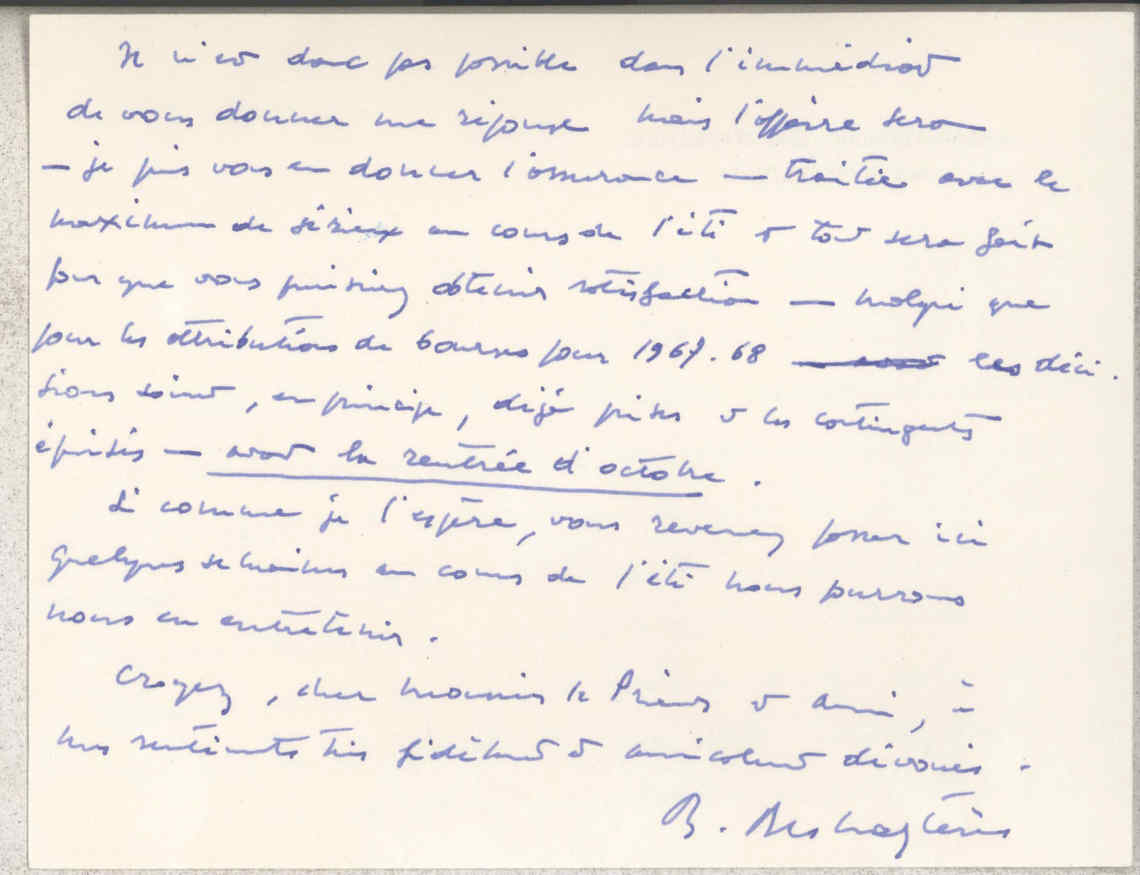 Il n'est donc pas possible dans l'immédiat
de vous donner une réponse mais l'affaire sera
— je puis vous en donner l'assurance — traitée avec le
maximum de sérieux au cours de l'été et tout sera fait
pour que vous puissiez obtenir satisfaction — malgré que
pour les attributions de bourses pour 1967.68 les déci-
sions soient, en principe, déjà prises et les contingents
épuisés — avant la rentrée d'octobre.
Si comme je l'espère, vous revenez passer ici
quelques semaines au cours de l'été nous pourrons
nous en entretenir.
Croyez, cher Monsieur le Prieur et ami, à
mes sentiments très fidèlement et amicalement dévoués.